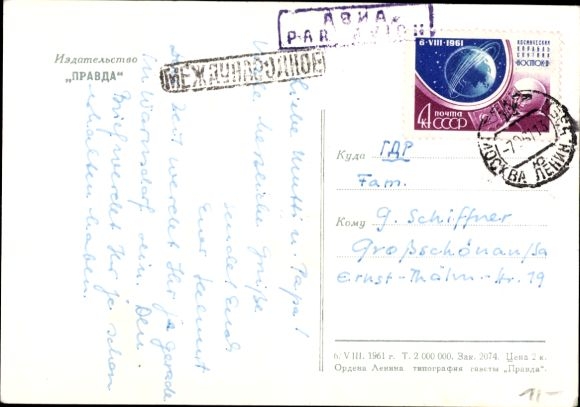 АВИА
PAR AVION
МЕЖДУНАРОДНОЕ
Издательство
„ПРАВДА“
6·VIII·1961
КОСМИЧЕСКИЙ
КОРАБЛЬ
СПУТНИК
„ВОСТОК-2“
4к
ПОЧТА
СССР
МОСКВА
Liebe Mutti u. Papa!
Viele herzliche Grüße
sendet Euch
Euer Helmut
Zur Zeit werdet Ihr ja gerade
in Warnsdorf sein. Den
Brief werdet Ihr ja schon
erhalten haben.
Куда ГДР
Fam.
Кому G. Schiffner
Großschönau/Sa
Ernst-Thälm.-Str. 19
6. VIII. 1961 г. Т. 2 000 000. Зак. 2074. Цена 2 к.
Ордена Ленина типография газеты „Правда“.